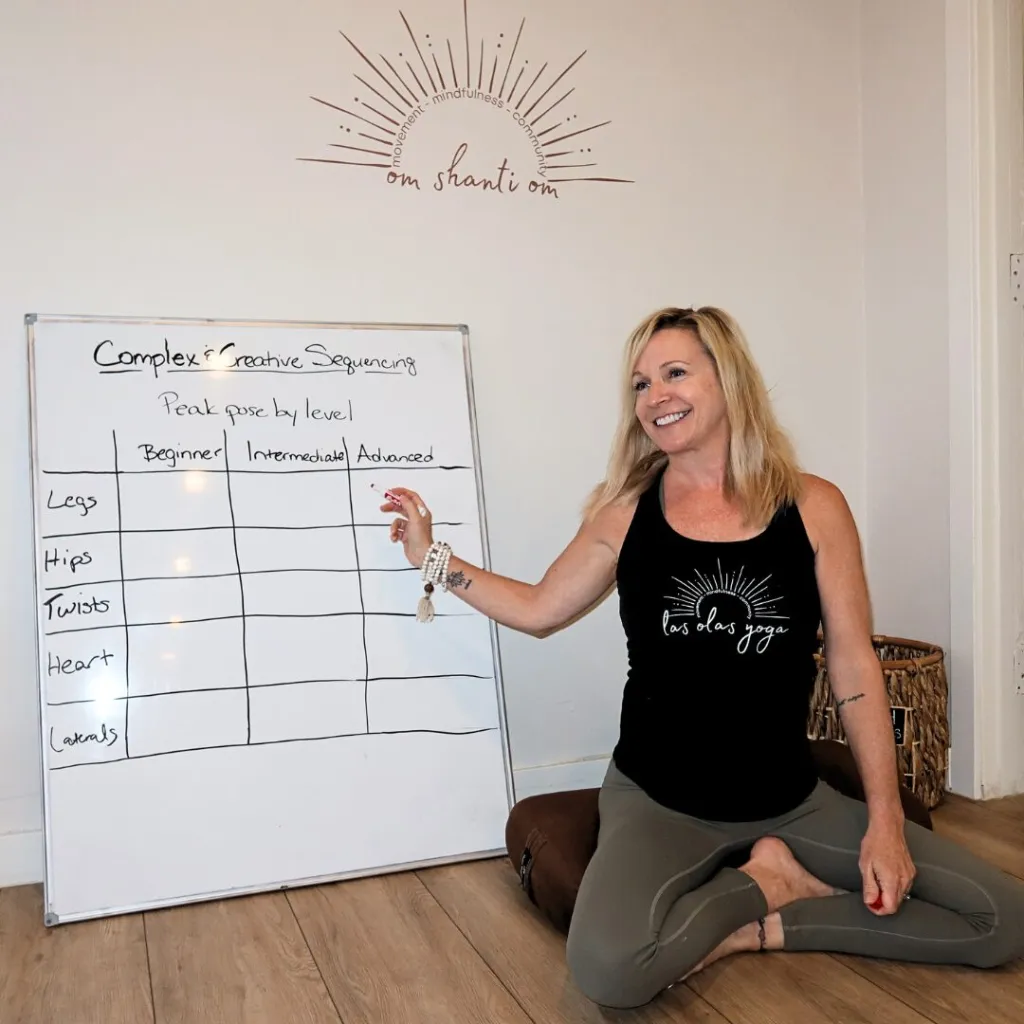 movement - mindfulness - community
om shanti om
Complex & Creative Sequencing
Peak pose by level
Beginner Intermediate Advanced
Legs
Hips
Twists
Heart
Laterals
mindfulness
las olas yoga